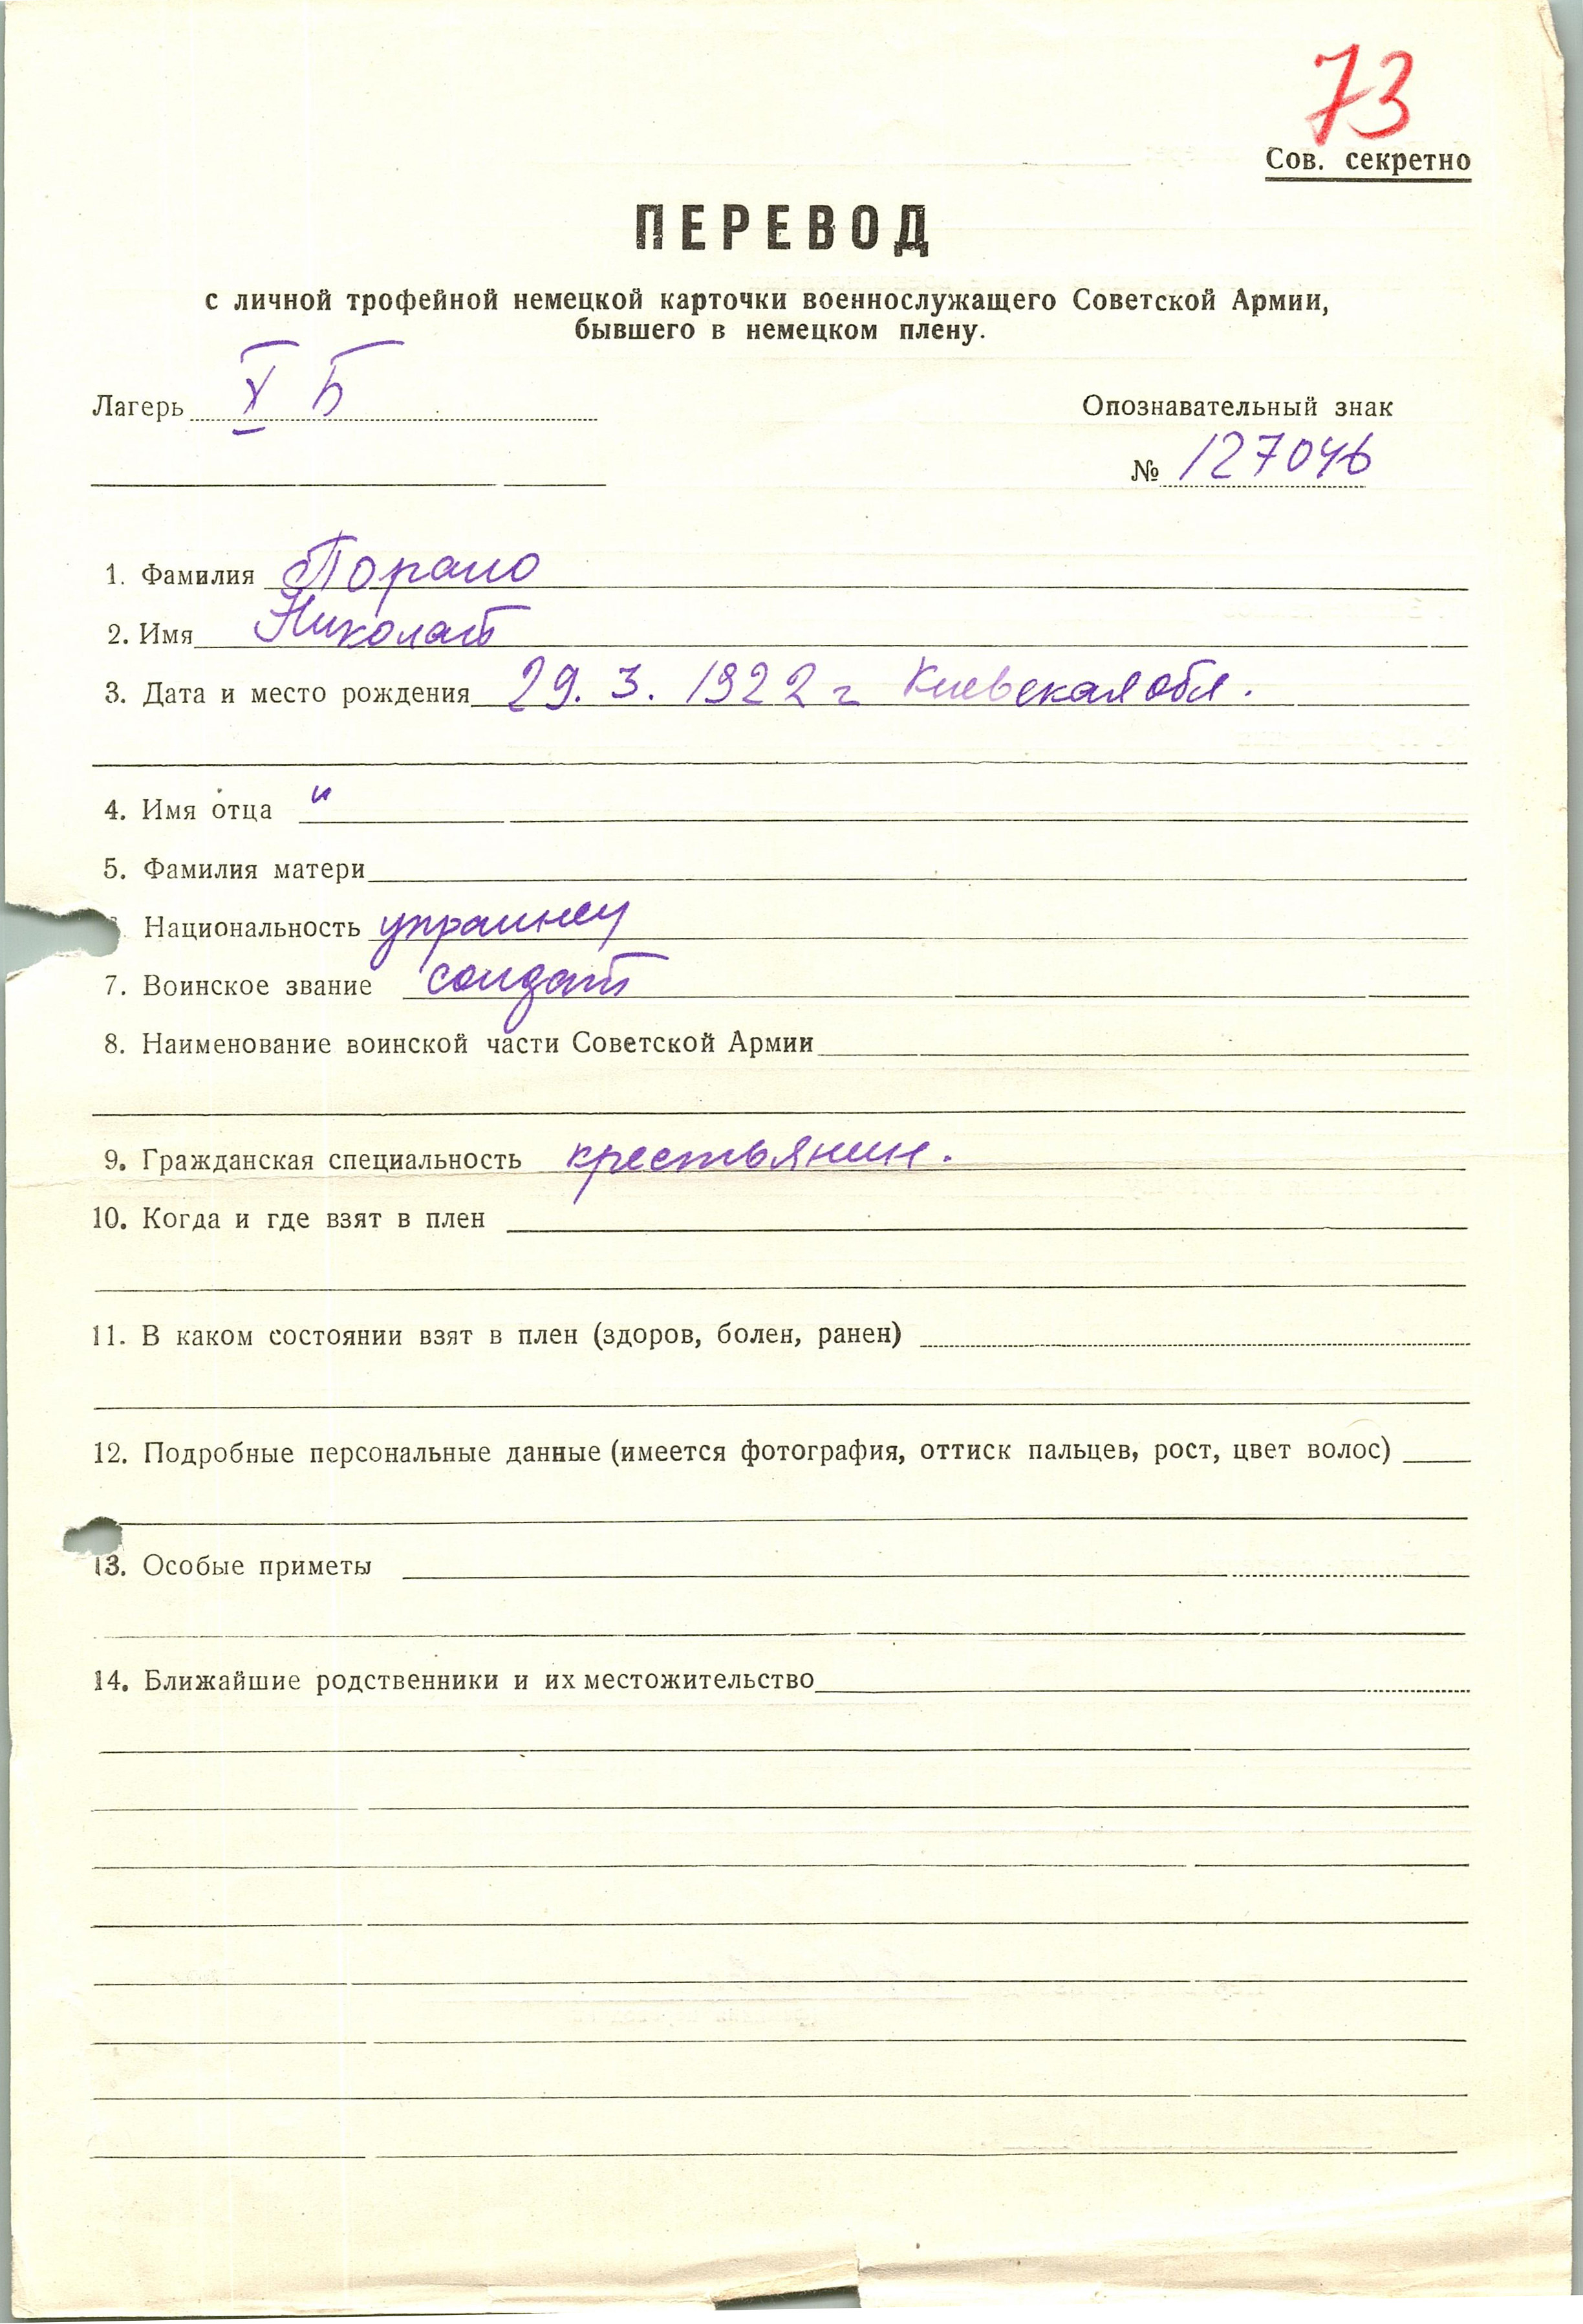 73
Сов. секретно
ПЕРЕВОД
с личной трофейной немецкой карточки военнослужащего Советской Армии,
бывшего в немецком плену.
Лагерь X Б
Опознавательный знак
№ 127046
1. Фамилия
2. Имя Николай
3. Дата и место рождения 29. 3. 1922 г Киевская обл.
4. Имя отца "
5. Фамилия матери
Национальность украинец
7. Воинское звание солдат
8. Наименование воинской части Советской Армии
9. Гражданская специальность крестьянин.
10. Когда и где взят в плен
11. В каком состоянии взят в плен (здоров, болен, ранен)
12. Подробные персональные данные (имеется фотография, оттиск пальцев, рост, цвет волос)
13. Особые приметы
14. Ближайшие родственники и их местожительство